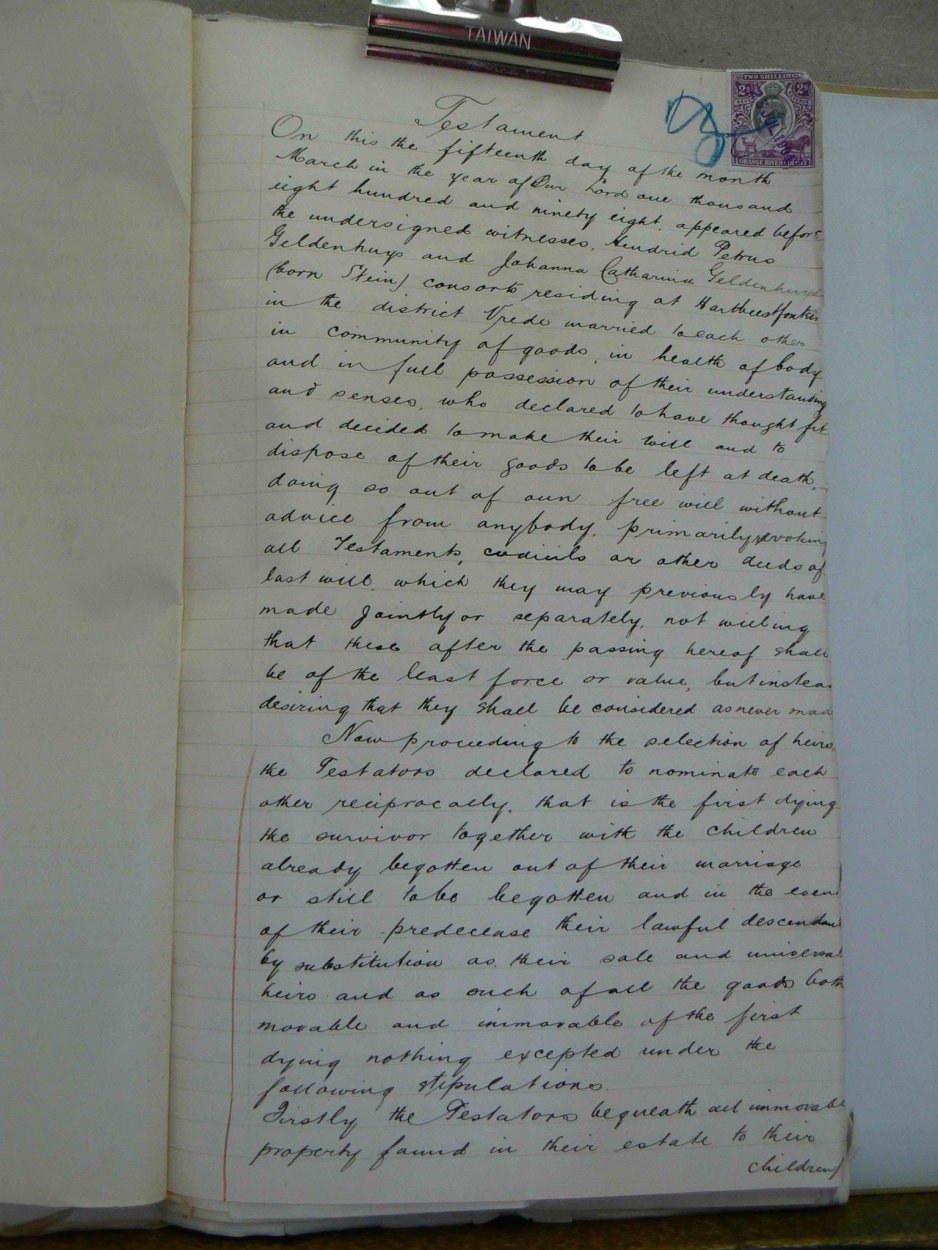 TAIWAN
TWO SHILLINGS
2s 2s
ORANGE RIVER COLONY
EAT
Testament
On this the fifteenth day of the month
March in the year of Our Lord one thousand
eight hundred and ninety eight, appeared before
the undersigned witnesses, Hendrid Petrus
Geldenhuys and Johanna Catharina Geldenhuys
(born Stein) consorts residing at Hartbeestfontein
in the district Vrede married to each other
in community of goods, in health of body
and in full possession of their understanding
and senses, who declared to have thought fit
and decided to make their will and to
dispose of their goods to be left at death,
doing so out of own free will without
advice from anybody, primarily revoking
all Testaments, codicils or other deeds of
last will, which they may previously have
made jointly or separately, not willing
that these after the passing hereof shall
be of the least force or value, but instead
desiring that they shall be considered as never mad
Now proceeding to the selection of heirs
the Testators declared to nominate each
other reciprocally, that is the first dying
the survivor together with the children
already begotten out of their marriage
or still to be begotten and in the even
of their predecease their lawful descendan
by substitution as their sole and universal
heirs and as such of all the goods both
movable and immovable of the first
dying nothing excepted under the
following stipulations.
Firstly the Testators bequeath all immovable
property found in their estate to their
children/